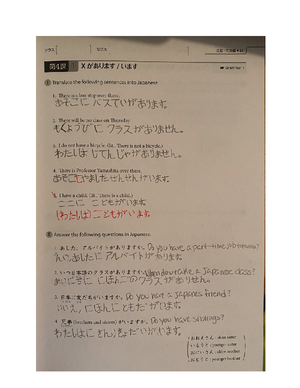 クラス
第4課 1 Xがあります/います
Grammar 1
Translate the following sentences into Japanese.
1. There is a bus stop over there.
あそこに バスていが あります。
2. There will be no class on Thursday.
もくようびに クラスが ありません。
3. I do not have a bicycle. (lit., There is not a bicycle.)
わたしは じてんしゃが ありません。
4. There is Professor Yamashita over there.
あそこに やました せんせいが います。
5. I have a child. (lit., There is a child.)
ここに こどもが います。
(わたしは) こどもが います。
Answer the following questions in Japanese.
1. あした、アルバイトがありますか。 Do you have a part-time job tomorrow?
あしたに アルバイトが あります。
2. いつ日本語のクラスがありますか。 When do you take a Japanese class?
にほんごの クラスが あります。
3. 日本に友だちがいますか。 Do you have a Japanese friend?
いいえ、にほんに ともだちが います。
4. 兄弟 (brothers and sisters) がいますか。 Do you have siblings?
わたしは きょうだいが います。
おねえさん : older sister
いもうと : younger sister
おにいさん : older brother
おとうと : younger brother